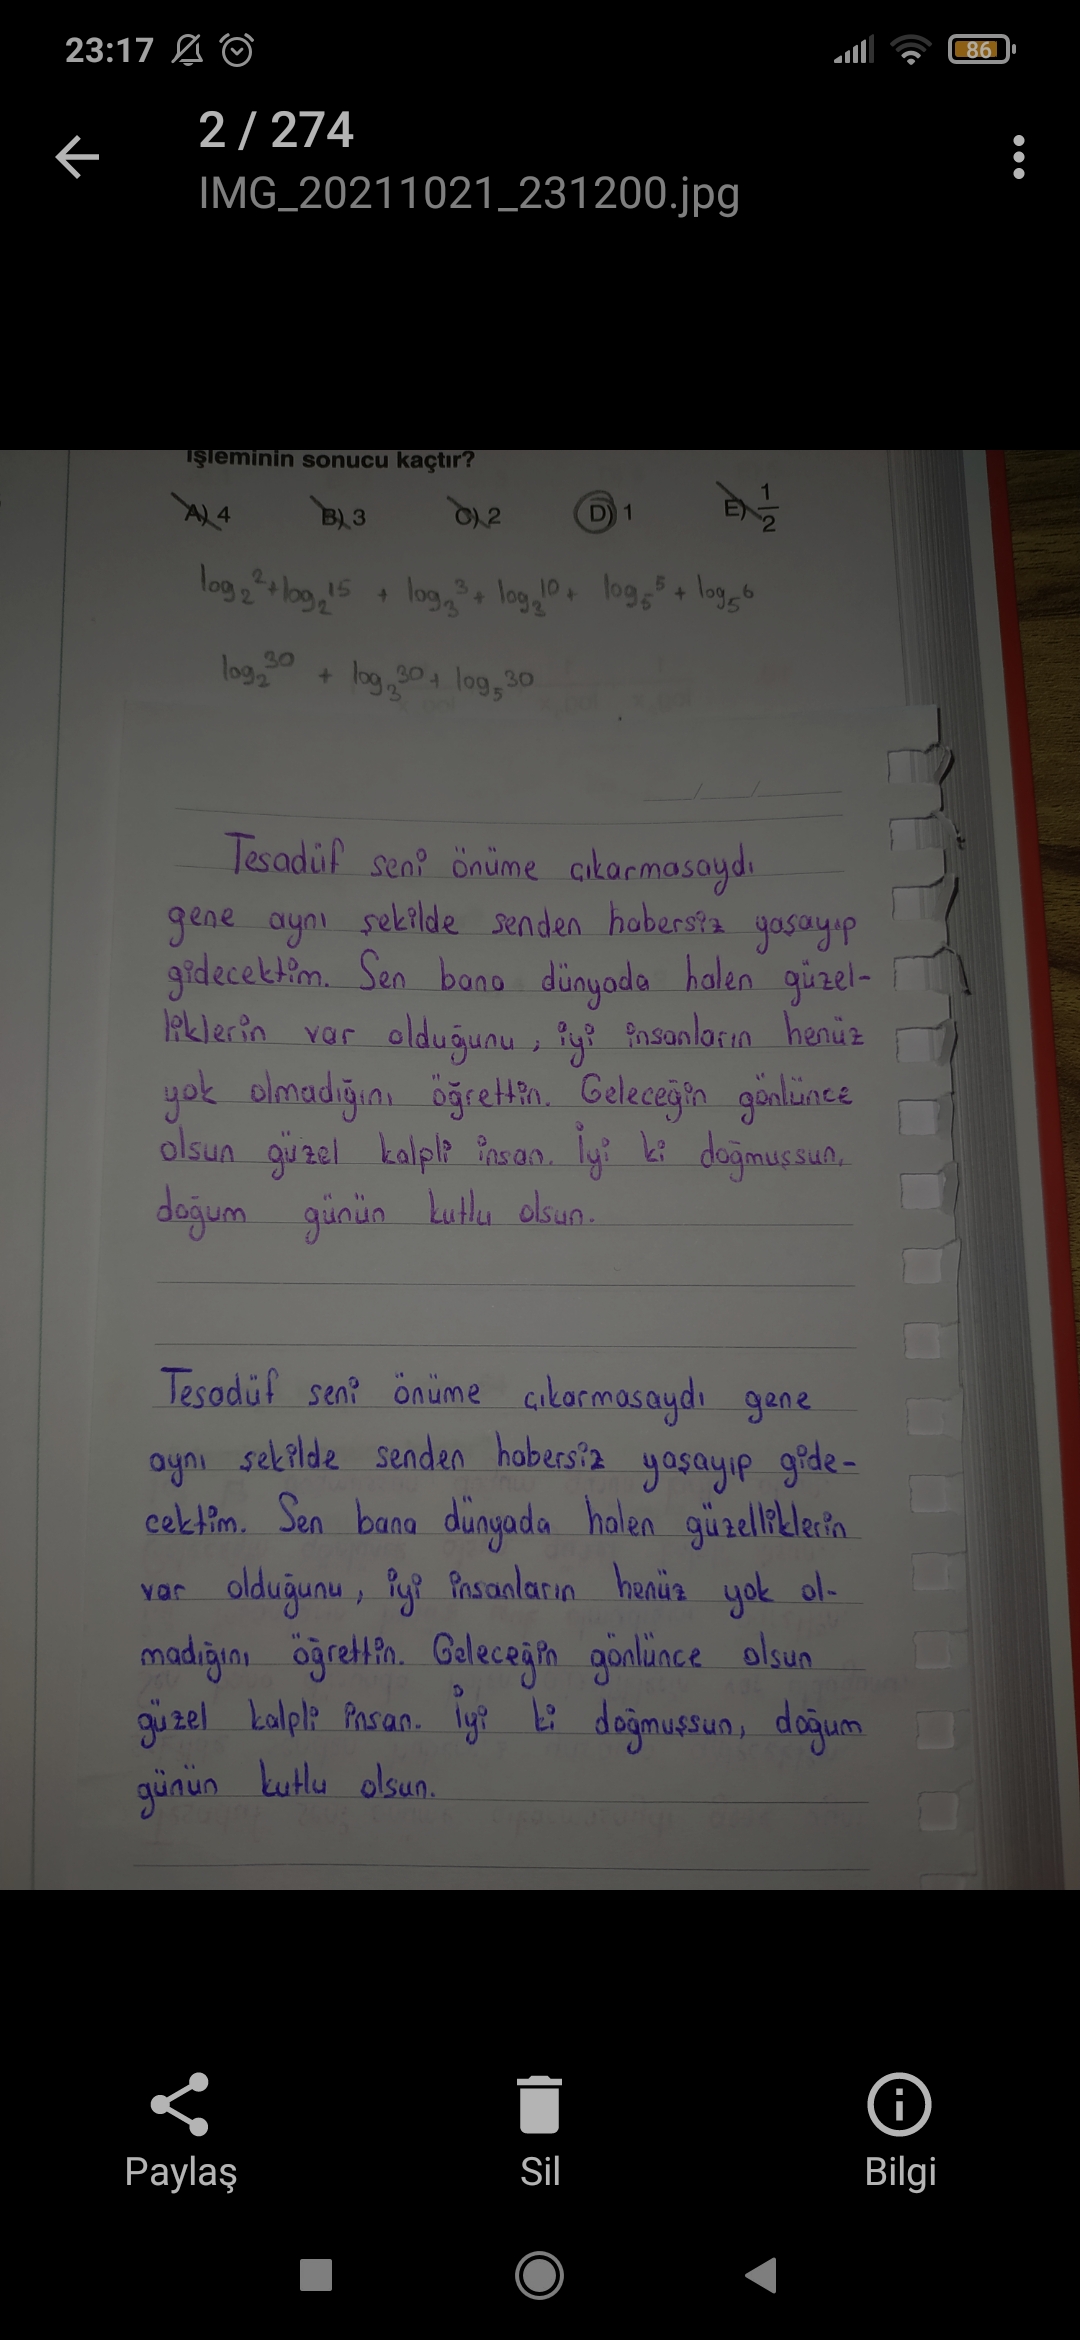 23:17
86
2 / 274
IMG_20211021_231200.jpg
işleminin sonucu kaçtır?
A) 4 B) 3 C) 2 D) 1 E) 1/2
log₂2 + log₂15 + log₃3 + log₃10 + log₅5 + log₅6
log₂30 + log₃30 + log₅30
Tesadüf seni önüme çıkarmasaydı
gene aynı şekilde senden habersiz yaşayıp
gidecektim. Sen bana dünyada halen güzel-
liklerin var olduğunu, iyi insanların henüz
yok olmadığını öğrettin. Geleceğin gönlünce
olsun güzel kalpli insan. İyi ki doğmuşsun,
doğum günün kutlu olsun.
Tesadüf seni önüme çıkarmasaydı gene
aynı şekilde senden habersiz yaşayıp gide-
cektim. Sen bana dünyada halen güzelliklerin
var olduğunu, iyi insanların henüz yok ol-
madığını öğrettin. Geleceğin gönlünce olsun
güzel kalpli insan. İyi ki doğmuşsun, doğum
günün kutlu olsun.
Paylaş Sil Bilgi